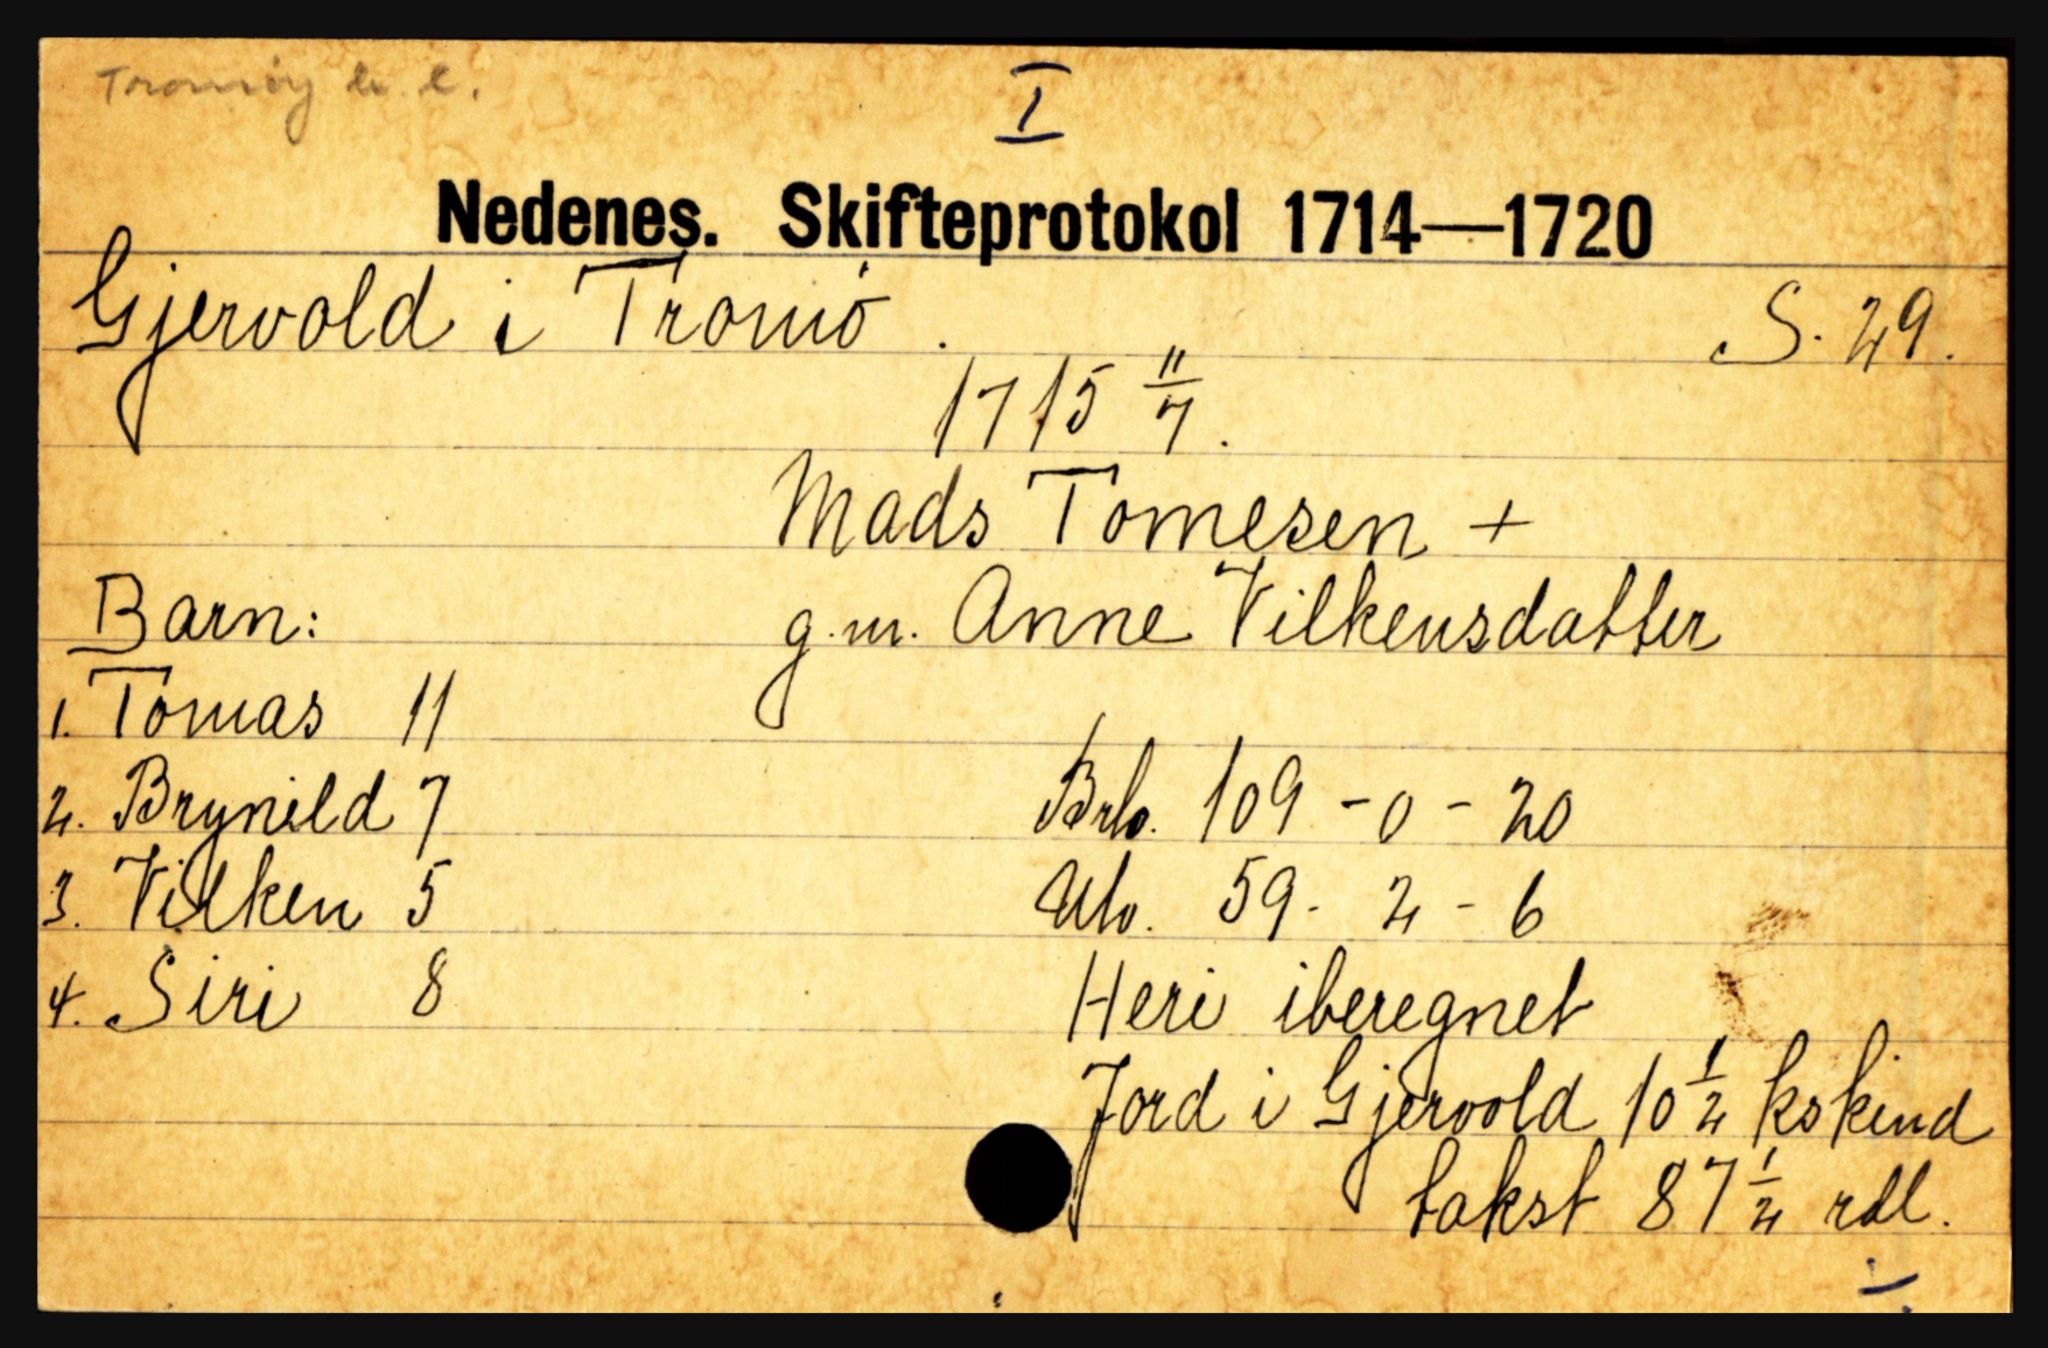 Tromøy
I
Nedenes. Skifteprotokol 1714—1720
Gjervold i Tromö. S. 29.
1715 11/7.
Mads Tomesen +
Barn: g.m. Anne Vilkensdatter
1. Tomas 11
2. Brynild 7 Brb. 109 - 0 - 20
3. Vilken 5 Ub. 59 - 2 - 6
4. Siri 8 Heri iberegnet
Jord i Gjervold 10 1/2 kskind
takst 87 1/2 rdl.